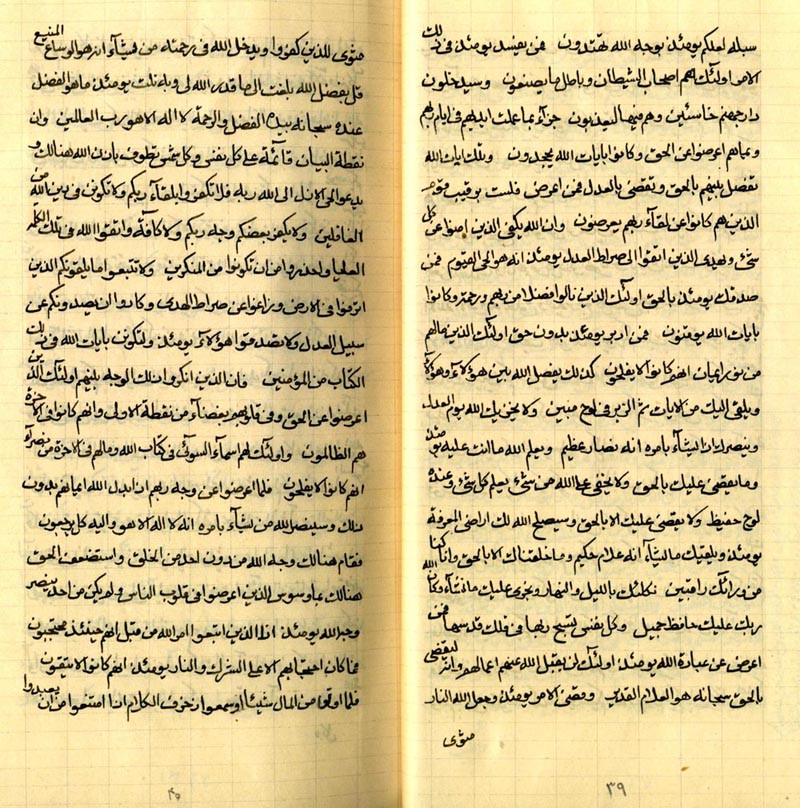 سبله لعلكم يومئذ بوجه الله تهتدون فمن يفسد يومئذ في ذلك
الامر اولئك هم اصحاب الشيطان وباطل ما يصنعون وسيدخلون
دار جهنم خاسئين وهم فيها ليعذبون جزآء بما عملت ايديهم في ايام ربهم
وبما هم اعرضوا عن الحق وكانوا بايات الله يجحدون وتلك ايات الله
تفصل بينهم بالحق وتقضي بالعدل فمن اعرض فلست برقيب
الذين هم كانوا عن لقاء ربهم معرضون وان الله يكفي الذين امنوا عن كل
شيء ويهدي الذين اتقوا الى صراط العدل يومئذ انه هو الحي القيوم فمن
صدقك يومئذ بالحق اولئك الذين نالوا فضلا من ربهم ورحمة وكانوا
بايات الله يوقنون فمن ادبر يومئذ بدون حق اولئك الذين ما لهم
من نور ايمان انهم كانوا لا يفلحون كذلك يفصل الله بين هؤلاء وهؤلاء
ويلقي اليك من الايات ثم الزبر في لوح مبين ولا يحزنك الله يوم العدل
وينصر من يشآء بامره انه نصار عظيم ويعلم الله ما انت عليه يومئذ
وما يقضي عليك بالحق ولا يخفي على الله من شيء يعلم كل شيء وعنده
لوح حفيظ ولا يقضي عليك الا بالحق وسيصلح الله لك اراضي المعرفة
يومئذ ويلقيك ما يشآء انه علام حكيم وما خلقناك الا بالحق وانا كنا
من ورائك راقبين نكلئك بالليل والنهار ونجري عليك ما نشآء وكان الله
ربك عليك حافظ جميل وكل نفس لتسبح ربها في فلك قدسها فمن
اعرض عن عبادة الله يومئذ اولئك لن يقبل الله عنهم اعمالهم وانه ليقضي
بالحق سبحانه هو العلام القدير وقضي الامر يومئذ وجعل الله النار
مثوى
٣٩
مثوى للذين كفروا ويدخل الله في رحمته من يشآء انه هو الوساع المنيع
قل بفضل الله بلغت الى ما قدر الله لي وبه نلت يومئذ ما هو الفضل
عنده سبحانه بيده الفضل والرحمة لا اله الا هو رب العالمين وان
نقطة البيان قآئمة على كل نفس وكل شيء تطوف باذن الله هنالك
يدعو الى الله ربه فلا تكفرن بلقآء ربكم ولا تكونن في دين الله من
الغافلين ولا يكفر بعضكم وجه ربكم ولا كافة واتقوا الله في تلك الكلمة
العليا واحذروا من ان تكونوا من المنكرين ولا تتبعوا ما يلقونكم الذين
اترفوا في الارض وزاغوا عن صراط الهدى وكادوا ان يصدونكم عن
سبيل العدل ولا تصدقوا هؤلآء يومئذ ولتكونن بايات الله في ذلك
الكتاب من المؤمنين فان الذين انكروا ذلك الوجه بينهم اولئك الذين
اعرضوا عن الحق وفي قلوبهم بغضآء من نقطة الاولى وانهم كانوا في الاخرة
هم الظالمون واولئك لهم اسمآء السوئى في كتاب الله وما لهم في الاخرة من نصرآء
انهم كانوا لا يفلحون فلما اعرضوا عن وجه ربهم ان ابدل الله ايمانهم بدون
ذلك وسيفضل الله من يشآء بامره انه لا اله الا هو واليه كل يرجعون
فقام هنالك وجه الله من دون احد من الخلق واستضعف الحق
هنالك بما وسوس الذين اعرضوا في قلوب الناس ولم يكن من احد ينصر
وجه الله يومئذ اذا الذين اتبعوا امر الله من قبل انهم حينئذ محتجبون
فما كان احتجابهم الا على الشرك والنار يومئذ انهم كانوا لا يتقون
فلما اوتوا من المال شيئا وسمعوا زخرف الكلام اذا امتنعوا من ان يعبدوا
٤٠